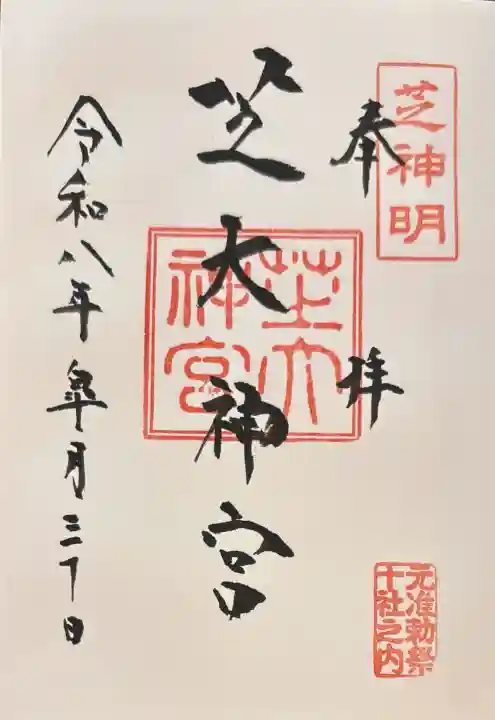 芝神明
奉拝
芝大神宮
芝大
神宮
令和八年皐月三十日
元准勅祭
十社之内